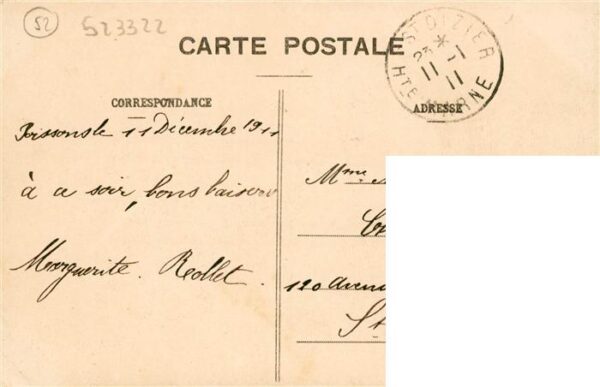 52
523322
CARTE POSTALE
ST DIZIER
* 
23 -1
11 11
HTE MARNE
CORRESPONDANCE
ADRESSE
le 11 Décembre 1911
à ce soir, bons baisers
Marguerite. Rollet.
Mme
120 Avenu
St